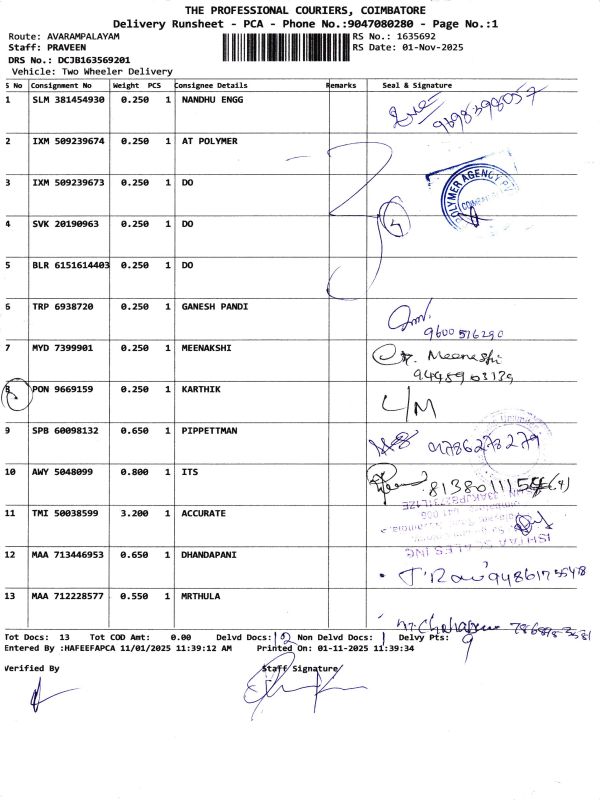 THE PROFESSIONAL COURIERS, COIMBATORE
Delivery Runsheet - PCA - Phone No.:9047080280 - Page No.:1
Route: AVARAMPALAYAM RS No.: 1635692
Staff: PRAVEEN RS Date: 01-Nov-2025
DRS No.: DCJB163569201
Vehicle: Two Wheeler Delivery
S No Consignment No Weight PCS Consignee Details Remarks Seal & Signature
1 SLM 381454930 0.250 1 NANDHU ENGG
2 IXM 509239674 0.250 1 AT POLYMER
3 IXM 509239673 0.250 1 DO POLYMER AGENCY
4 SVK 20190963 0.250 1 DO
5 BLR 6151614403 0.250 1 DO
6 TRP 6938720 0.250 1 GANESH PANDI
9600576290
7 MYD 7399901 0.250 1 MEENAKSHI Meenakshi
9445903139
8 PON 9669159 0.250 1 KARTHIK L/M
9 SPB 60098132 0.650 1 PIPPETTMAN 01786278279
10 AWY 5048099 0.800 1 ITS
11 TMI 50038599 3.200 1 ACCURATE
12 MAA 713446953 0.650 1 DHANDAPANI
13 MAA 712228577 0.550 1 MRTHULA
Tot Docs: 13 Tot COD Amt: 0.00 Delvd Docs: 12 Non Delvd Docs: 1 Delvy Pts: 9
Entered By :HAFEEFAPCA 11/01/2025 11:39:12 AM Printed On: 01-11-2025 11:39:34
Verified By Staff Signature